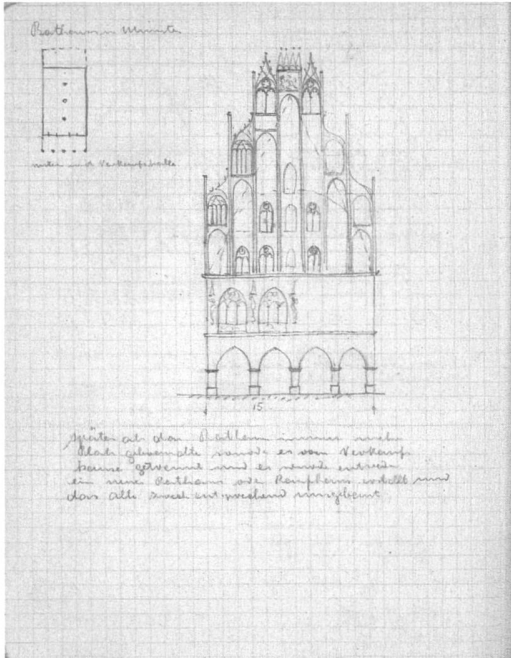 Rathaus in Münster
unten und Verkaufshalle
15
später als das Rathaus immer mehr
Platz wurde es vom Verkaufs
hause getrennt und es wurde entweder
ein neues Rathaus oder Kaufhaus erstellt und
das alte zweckentsprechend umgebaut